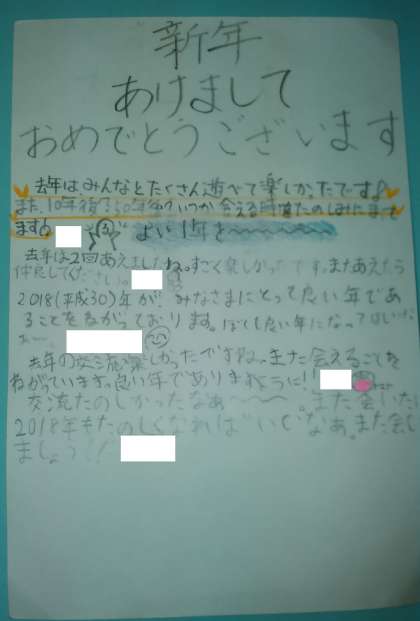 新年
あけまして
おめでとうございます
去年は、みんなとたくさん遊べて楽しかったです
また、10年後、50年後、いつか会える時を楽しみにしてます
ます
よい1年を〜〜〜
去年は2回あえましたね。すごく楽しかったです。またあえたら
仲良くしてください。
2018(平成30)年が、みなさまにとって良い年であ
ることをねがっております。ぼくも良い年になってほしいな
去年の交流楽しかったですね。また会えることを
ねがっています。良い年でありますように!
交流たのしかったなぁ〜〜〜。また会いたい
2018年もたのしくなればいいなぁ。また会い
ましょう!!